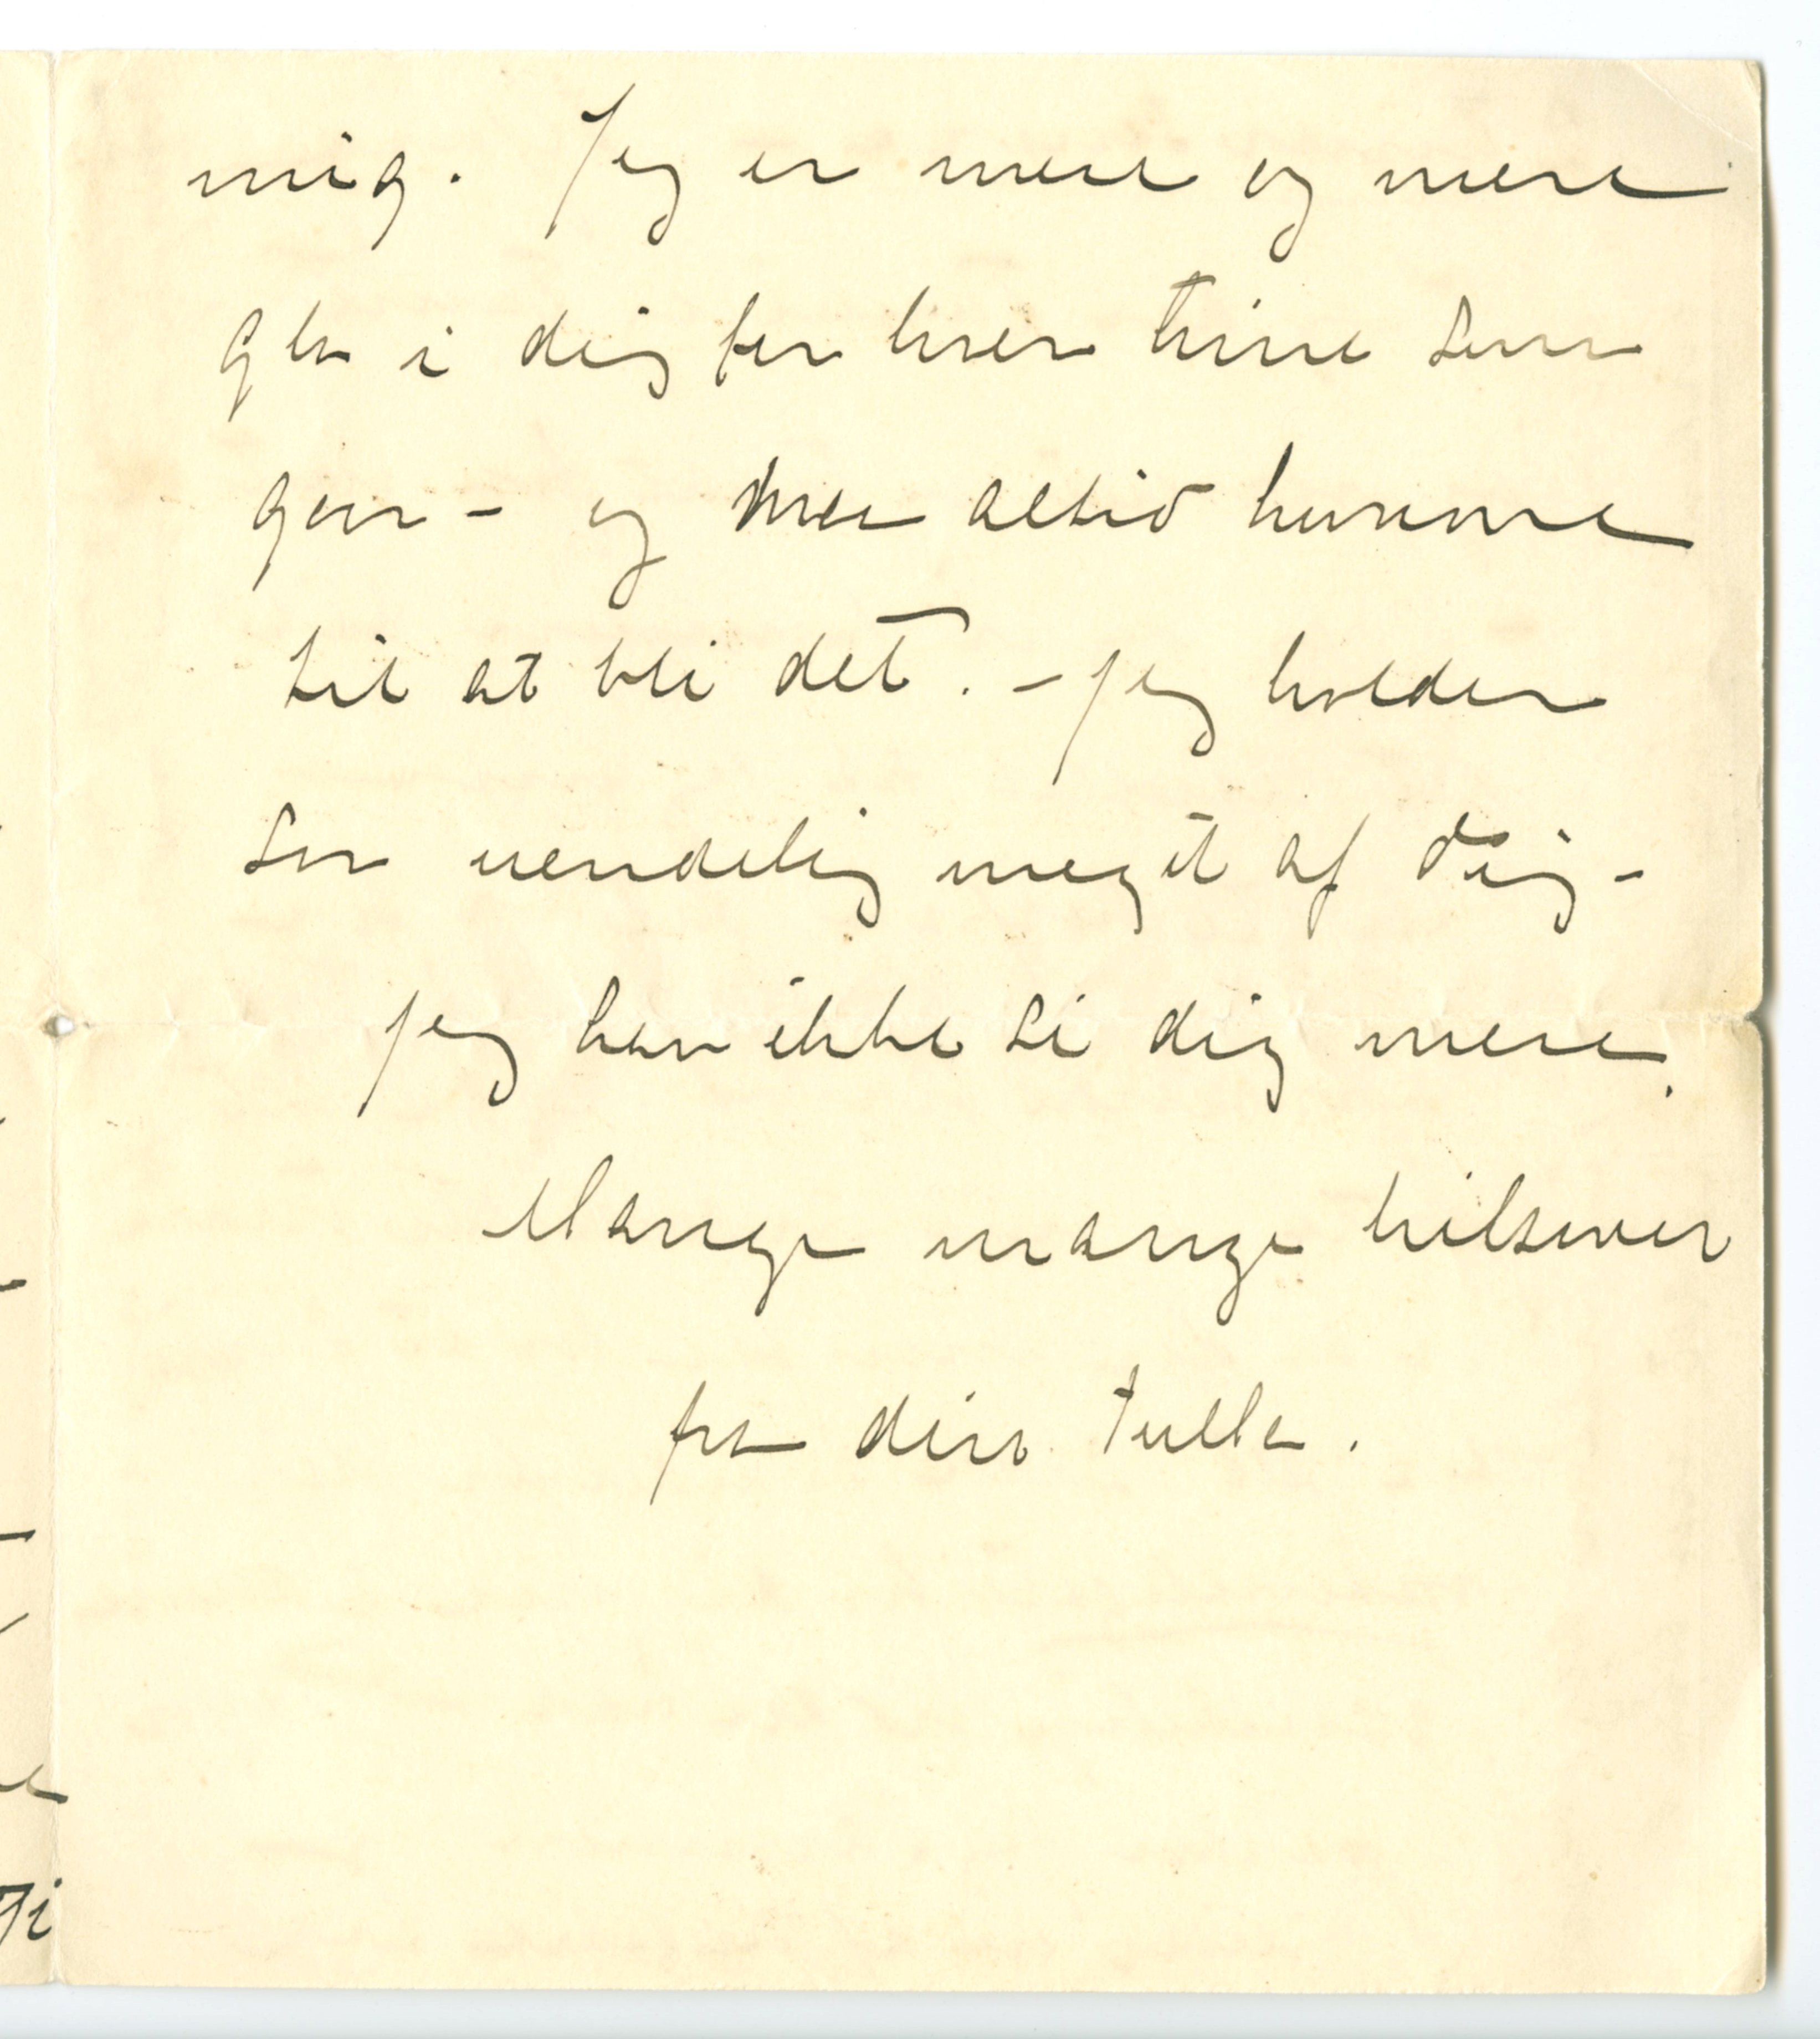 mig. Jeg er mere og mere
gla i dig for hver time som
gaar - og maa altid komme
til at bli det. - Jeg holder
saa uendelig meget af dig -
Jeg kan ikke si dig mere.
Mange mange hilsener
fra din Tulla.